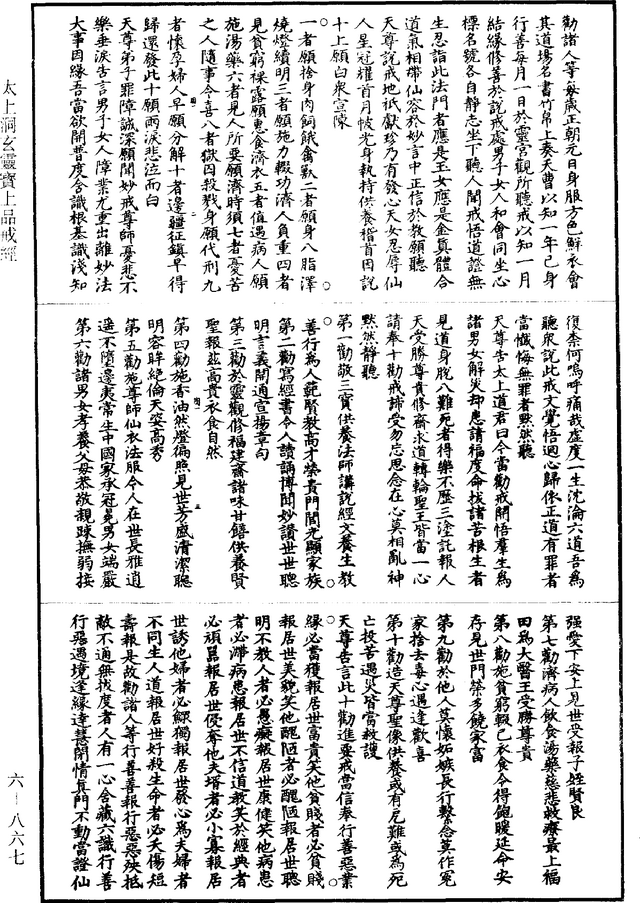 勸諸人等每歲正朝元日身服方色鮮衣會
其道場名書竹帛上奏天曹以知一年己身
行善每月一日於靈宮觀所聽戒以知一月
結緣修善於說戒處男子女人和會同生心
標名號各自靜志坐下聽人聞戒悟道證無
生忍詣此法門者應是玉女應是金真體合
道氣相帶仙容於妙言中正信於教願聽
天尊說戒地祇獻珍乃有發心天女忍辱仙
人星冠耀首月帔光身執持供養稽首因說
十上願白衆宣陳
一者願捨身肉飼餓禽獸二者願身八脂澤
燒燈續明三者願施力輟功濟人負重四者
見貧窮裸露願惠食濟衣五者值遇病人願
施湯藥六者見人所要願濟時須七者憂苦
之人隨事令喜八者獄囚殺戮身願代刑九
者懷孕婦人早願分解十者邊疆征鎮早得
歸還發此十願兩淚悲泣而白
天尊弟子罪障誠深願聞妙戒尊師憂悲不
樂垂淚告言男子女人障業尤重出離妙法
大事因緣吾當欲開普度含識根基識淺知
復柰何嗚呼痛哉虛度一生沈淪六道吾爲
聽衆說此戒文覺悟迴心歸依正道有罪者
當懺悔無罪者默然聽
天尊告太上道君曰今當勸戒開悟羣生爲
諸男女解災却患請福度命拔諸苦根生者
見道身脫八難死者得樂不歷三塗託報人
天受勝尊貴修齋求道轉輪聖王皆當一心
請奉十勸戒諦受勿忘思念在心莫相亂神
默然靜聽
第一勸敬三寶供養法師講說經文養生教
善行爲人範賢教高才榮貴門閭光顯家族
第二勸寫經書令人讀誦博聞妙讚世世聰
明言義開通宣揚章句
第三勸於靈觀修福建齋諸味甘饍供養賢
聖報茲高貴衣食自然
第四勸施香油然燈徧照見世芳盛清潔聰
明容眸絕倫天姿高秀
第五勸施尊師仙衣法服令人在世長雅逍
遥不隨邊夷常生中國家承冠冕男女端嚴
第六勸諸男女孝養父母恭敬親踈撫弱接
强愛下安上見世受報子姪賢良
第七勸濟病人飲食湯藥慈悲救療最上福
田爲大醫王受勝尊貴
第八勸施貧窮輟己衣食令得飽暖延命安
存見世門榮多饒家富
第九勸於他人莫懷妬嫉長行繫念莫作冤
家捨去毒心遇逢歡喜
第十勸造天尊聖像供養或有厄難或爲死
亡投苦遇災皆當救護
天尊告言此十勸進要戒當信奉行善惡業
緣必當獲報居世富貴笑他貧賤者必貧賤
報居世美貌笑他醜陋者必醜陋報居世聰
明不教人者必愚癡報居世康健笑他病患
者必滯病患報居世不信道教笑於經典者
必頑嚚報居世侵奪他夫壻者必小寡報居
世誘他婦者必鰥獨報居世發心爲夫婦者
不同生人道報居世好殺生命者必夭傷短
壽報是故勸諸人等行善善報行惡惡殃抵
敵不適無拔度者人有一心含藏六識行善
行惡遇境逢緣達慧閉情真門不動當證仙
太上洞玄靈寶上品戒經
六—八六七